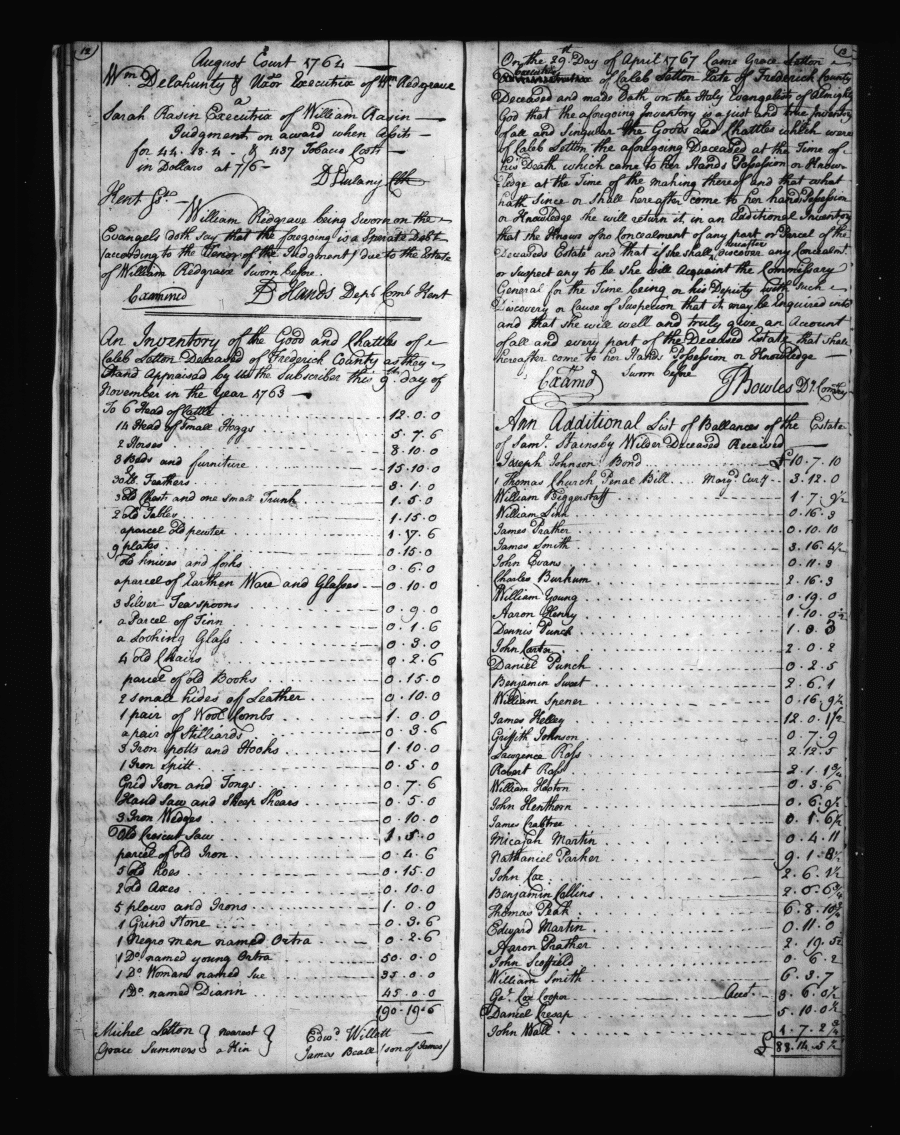 12
August Court 1764
Wm Delahunty & Uxor Executrix of Wm Redgrave
a
Sarah Rasin Executrix of William Rasin
Judgment on award when assets
for 44.18.4 & 437 Tobacco Costs
in Dollars at 7/6
D Dulany
Kent Sst.
William Redgrave being Sworn on the
Evangels doth say that the foregoing is a Sperate Debt
(according to the Tenor of the Judgment) due to the Estate
of William Redgrave Sworn before
Examined Hands Depy Comb Kent
An Inventory of the Good and Chattles of
Caleb Letton Deceased of Frederick County as they
Stand Appraised by us the Subscriber this 9th day of
November in the year 1763
To 6 Head of Cattle 12.0.0
14 Head of Small Hoggs 5.7.6
2 Horses 8.10.0
3 Beds and furniture 15.10.0
30 lb. Feathers 3.1.0
3 old Chest and one small Trunk 1.5.0
2 old Tables 1.15.0
a parcel old pewter 1.17.6
9 plates 0.15.0
old knives and forks 0.6.0
a parcel of Earthen Ware and Glasses 0.10.0
3 Silver Teaspoons 0.9.0
a Parcel of Tinn 0.1.6
a Looking Glass 0.3.0
4 old Chairs 0.2.6
parcel of old Books 0.15.0
2 small hides of Leather 0.10.0
1 pair of Wool Combs 1.0.0
a pair of Stilliards 0.3.6
3 Iron potts and Hooks 1.10.0
1 Iron Spitt 0.5.0
Grid Iron and Tongs 0.7.6
Hand Saw and Sheep Shears 0.5.0
3 Iron Wedges 0.10.0
Old Croscut Saw 1.5.0
parcel of old Iron 0.4.6
5 old hoes 0.15.0
2 old Axes 0.10.0
5 plows and Irons 1.0.0
1 Grind Stone 0.3.6
1 Negro man named Ootra 0.2.6
1 Do. named young Ootra 50.0.0
1 Do Woman named Sue 35.0.0
1 Do. named Diann 45.0.0
190.19.6
Michel Letton } nearest } Edwd Willett
Grace Summers } a Kin } James Beall (son of James)
13
On the 29th Day of April 1767 Came Grace Letton
Executrix
of Caleb Letton Late of Frederick County
Deceased and made Oath on the Holy Evangelists of Almighty
God that the aforegoing Inventory is a just and true Inventory
of all and Singular the Goods and Chattles which were
of Caleb Letton the aforegoing Deceased at the Time of
his Death which came to her Hands Possession or Know-
ledge at the Time of the making thereof and that what
hath Since or shall hereafter come to her hand Possession
or Knowledge she will return it in an Additional Inventory
that she Knows of no Concealment of any part or Parcel of the
hereafter
Deceaseds Estate and that if she shall discover any Concealmt.
or Suspect any to be She will Acquaint the Commissary
General for the Time being or his Deputy with such
Discovery or Cause of Suspecion that it may be Enquired into
and that she will well and truly give an Account
of all and every part of the Deceased Estate that shall
hereafter come to her Hands Possession or Knowledge
Sworn before
Examd J Bowles Dy. Comry
Ann Additional List of Ballances of the Estate
of Saml. Stainsby Wilder Deceased Received
Joseph Johnson Bond £10.7.10
1 Thomas Church Penal Bill 3.12.0
William Biggerstaff 1.7.9½
William Linn 0.16.3
James Prather 0.10.10
James Smith 3.16.4½
John Evans 0.11.3
Charles Burkum 2.16.3
William Young 0.19.0
Aaron Henry 1.10.0½
Dennis Punch 1.8.3
John Carter 2.0.2
Daniel Punch 0.2.5
Benjamin Sweet 2.6.1
William Spener 0.16.9½
James Kelley 12.0.1½
Griffith Johnson 0.7.9
Lawrence Ross 2.12.5
Robert Ross 2.1.1¾
William Hoston 0.3.6
John Henthorn 0.6.9½
James Crabtree 0.1.6½
Micajah Martin 0.4.11
Nathaniel Parker 9.1.8½
John Cox 2.6.1½
Benjamin Collins 2.0.6¾
Thomas Peak 6.8.10¾
Edward Martin 0.11.0
Aaron Prather 2.19.5½
John Scoffield 0.6.2
William Smith 6.3.7
Go. Cox Cooper Acct. 8.6.0½
Daniel Cresap 5.10.0½
John Wall 4.7.2¾
£ 88.14.5½